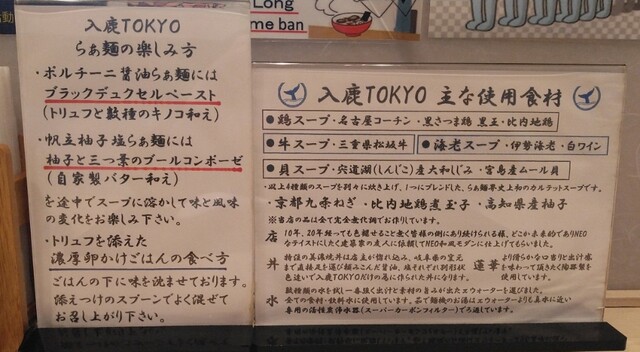 Long
me ban
入鹿TOKYO
らぁ麺の楽しみ方
・ポルチーニ醤油らぁ麺には
ブラックデュクセルペースト
(トリュフと数種のキノコ和え)
・帆立柚子塩らぁ麺には
柚子と三つ葉のブールコンポーゼ
(自家製バター和え)
を途中でスープに溶かして味と風味
の変化をお楽しみ下さい。
・トリュフを添えた
濃厚卵かけごはんの食べ方
ごはんの下に味を沈ませております。
添えつけのスプーンでよく混ぜて
お召し上がり下さい。
入鹿TOKYO 主な使用食材
●鶏スープ・名古屋コーチン・黒さつま鶏 黒王・比内地鶏
●牛スープ・三重県松坂牛
●海老スープ・伊勢海老・白ワイン
●貝スープ・宍道湖(しんじこ)産大和しじみ・宮島産ムール貝
・以上4種類のスープを別々に炊き上げ、1つにブレンドした、らぁ麺界史上初のカルテットスープです。
・京都九条ねぎ・比内地鶏煮玉子・高知県産柚子
※当店の品は全て完全無化調でお作りしています。
店 10年、20年経っても色褪せること無く皆様の側にあり続けられる様、どこか未来的でありNEO
なテイストにしたく建築家の友人に依頼してNEO和風モダンに仕上げてもらいました。
丼 特注の美濃焼丼は店主が惚れ込み、岐阜県の窯元
まで直接足を運び頼みこんだ醤油、塩それぞれ別形状
色違いで入鹿TOKYOだけの為に作られた丼になります。
蓮華 より滑らかな口当りと出汁感
を味わって頂きたく陶器製を
使用しています。
水 数種類の水を試し一番抜く出汁と素材の旨みが出たπウォーターを選びました。
全ての食材・飲料水に使用しています。茹で麺機のお湯はπウォーターよりも真水に近い
専用の活性炭浄水器(スーパーカーボンフィルター)でろ過しています。